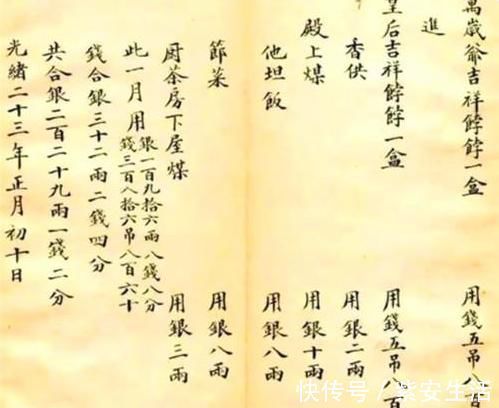 萬歲爺吉祥餑餑一盒 用錢五吊八百
進
皇后吉祥餑餑一盒 用錢五吊八百
香供 用銀二兩
殿上煤 用銀十兩
他坦飯 用銀八兩
節菜 用銀八兩
厨茶房下屋煤 用銀三兩
此一月用 銀一百九拾六兩八錢八分
錢三百八拾六吊八百六十
錢合銀三十二兩二錢四分
共合銀二百二十九兩一錢二分
光緒二十三年正月初十日
快传号/紫安生活